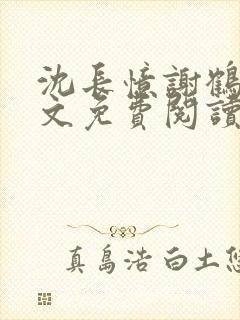 沈長憶謝鶴
文免費閱讀
真島浩 白土悠